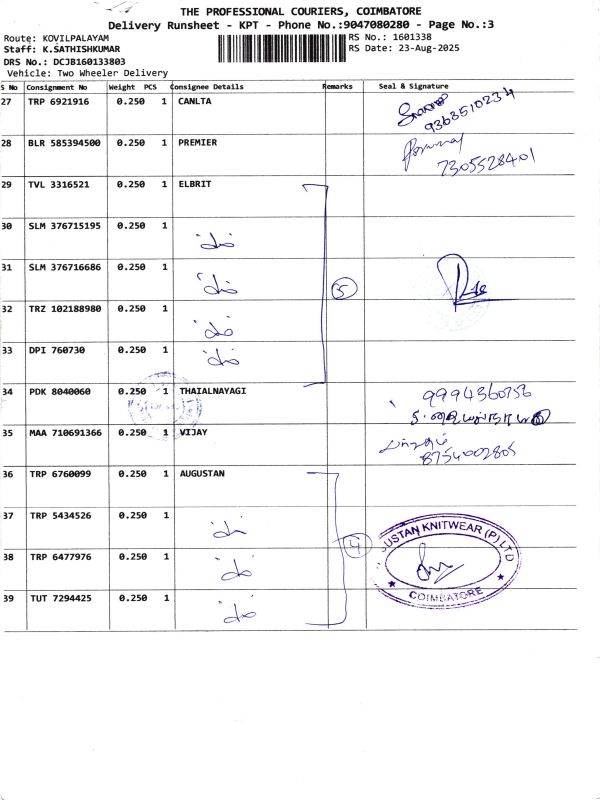 THE PROFESSIONAL COURIERS, COIMBATORE
Delivery Runsheet - KPT - Phone No.:9047080280 - Page No.:3
Route: KOVILPALAYAM
RS No.: 1601338
Staff: K.SATHISHKUMAR
RS Date: 23-Aug-2025
DRS No.: DCJB160133803
Vehicle: Two Wheeler Delivery
S No Consignment No Weight PCS Consignee Details Remarks Seal & Signature
27 TRP 6921916 0.250 1 CANLTA
9363510234
28 BLR 585394500 0.250 1 PREMIER
7305528401
29 TVL 3316521 0.250 1 ELBRIT
30 SLM 376715195 0.250 1
31 SLM 376716686 0.250 1
5
32 TRZ 102188980 0.250 1
33 DPI 760730 0.250 1
34 PDK 8040060 0.250 1 THAIALNAYAGI
9994360756
35 MAA 710691366 0.250 1 VIJAY
8754002805
36 TRP 6760099 0.250 1 AUGUSTAN
37 TRP 5434526 0.250 1
4
USTAN KNITWEAR (P) LTD
38 TRP 6477976 0.250 1
39 TUT 7294425 0.250 1
COIMBATORE